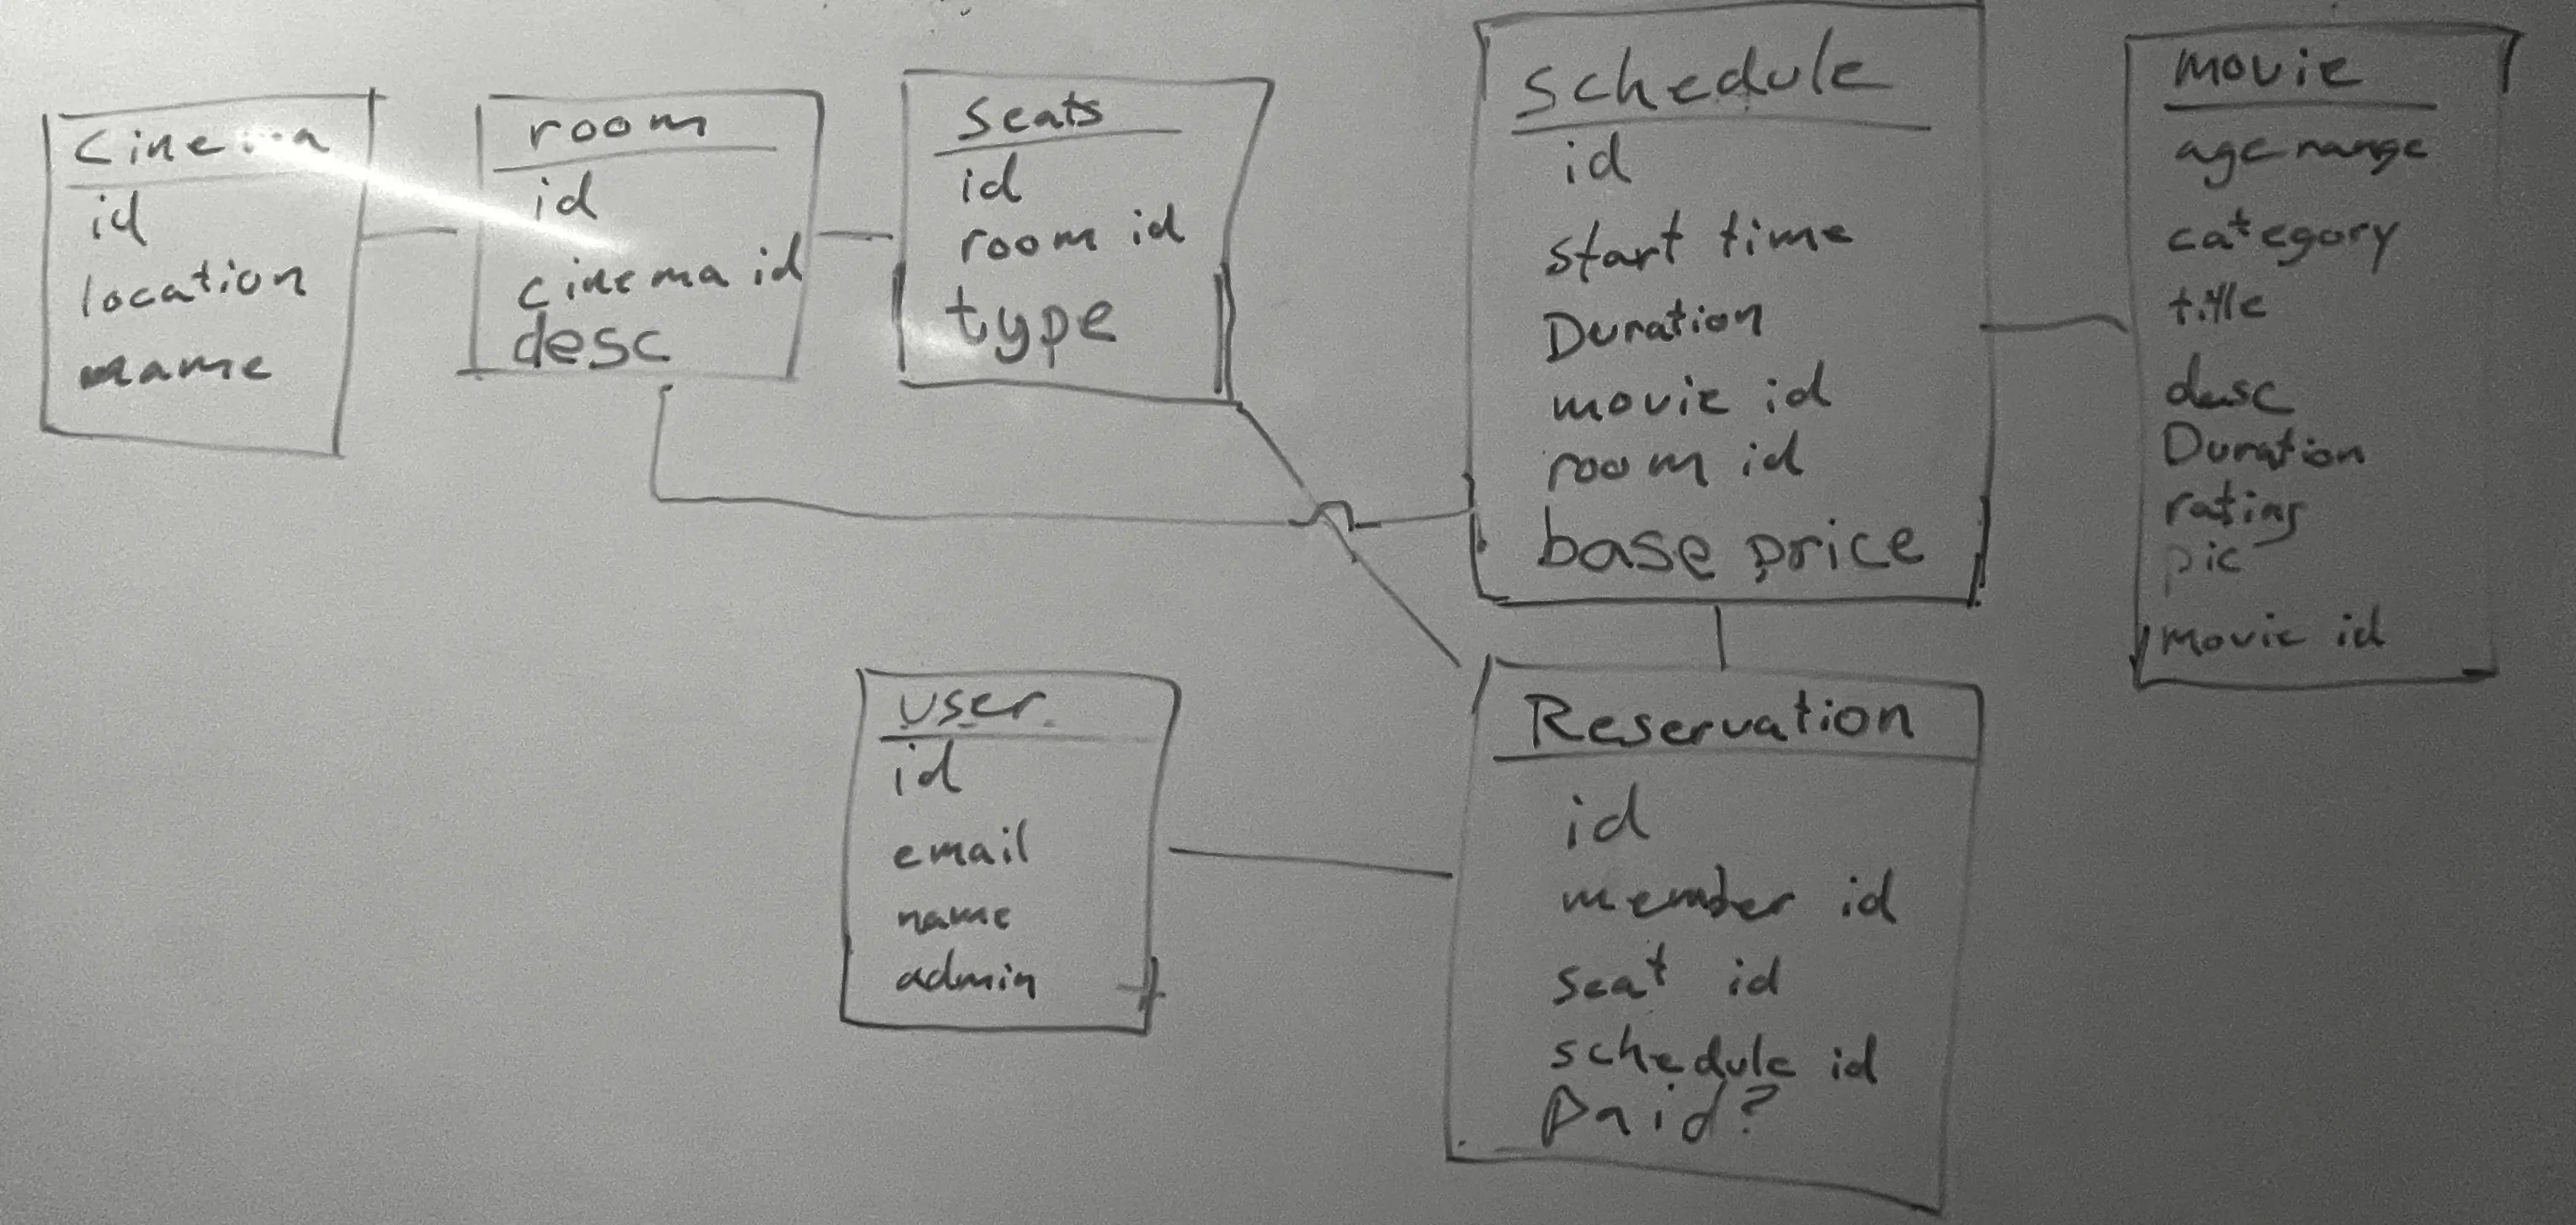 Cinema
id
location
name
room
id
cinema id
desc
seats
id
room id
type
schedule
id
start time
Duration
movie id
room id
base price
movie
age range
category
title
desc
Duration
rating
pic
movie id
user
id
email
name
admin
Reservation
id
member id
seat id
schedule id
Paid?